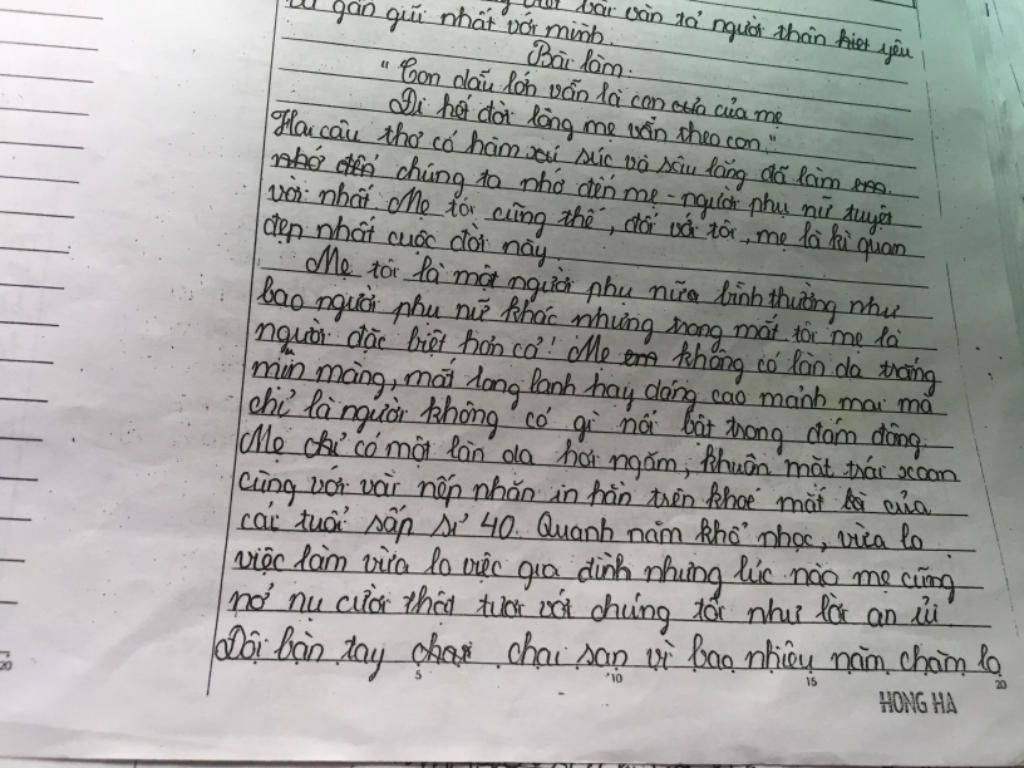 bài văn tả người thân yêu
gần gũi nhất với mình.
Bài làm.
"Con dẫu lớn vẫn là con của mẹ
Đi hết đời lòng mẹ vẫn theo con."
Hai câu thơ có hàm xú súc và sâu lắng đã làm em
nhớ đến chúng ta nhớ đến mẹ - người phụ nữ tuyệt
vời nhất. Mẹ tôi cũng thế, đối với tôi, mẹ là kì quan
đẹp nhất cuộc đời này.
Mẹ tôi là một người phụ nữa bình thường như
bao người phụ nữ khác nhưng trong mắt tôi mẹ là
người đặc biệt hơn cả! Mẹ em không có làn da trắng
mịn màng, mắt long lanh hay dáng cao mảnh mai mà
chỉ là người không có gì nổi bật trong đám đông.
Mẹ chỉ có một làn da hơi ngăm, khuôn mặt trái xoan
cùng với vài nếp nhăn in hằn trên khoé mắt của
cái tuổi sấp sỉ 40. Quanh năm khổ nhọc, vừa lo
việc làm vừa lo việc gia đình nhưng lúc nào mẹ cũng
nở nụ cười thật tươi với chúng tôi như lời an ủi
Đôi bàn tay chai sạn vì bao nhiêu năm chăm lo
5 10 15 20
HONG HA
20